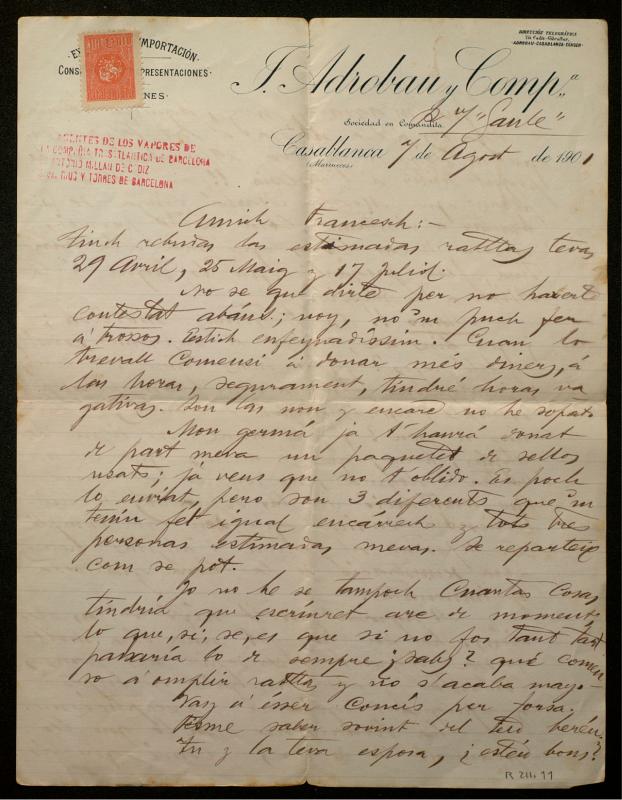 DIRECCIÓN TELEGRÁFICA
Via Cadiz-Gibraltar.
ADROBAU-CASABLANCA-TÁNGER
IMPORTACIÓN.
PRESENTACIONES
J. Adrobau y Comp.ª
Sociedad en Comandita.
Casablanca 7 de Agost de 1901
(Marruecos)
AGENTES DE LOS VAPORES DE
LA COMPAÑIA TRASATLANTICA DE BARCELONA
ANTONIO MILLAN DE CADIZ
RIUS Y TORRES DE BARCELONA
Amich Francesch:-
Tinch rebudas las estimadas ratllas tevas
29 Avril, 25 Maig y 17 Juliol.
No se que dirte per no haverte
contestat abáns; voy, no 'm puch fer
á trossos. Estich enfeynadíssim. Cuan lo
trevall comensi á donar més diners, á
las horas, segurament, tindré horas va
gativas. Son las nou y encare no he sopat.
Mon germá ja t' haurá donat
de part meva un paquetet de sellos
usats; já veus que no t'oblido. Es poch
lo enviat, pero son 3 diferents que 'm
tenen fet igual encárrech y tots tres
personas estimadas mevas. Se reparteix
com se pot.
Jo no he se tampoch cuantas cosas
tindría que escríuret are de moment;
lo que, si, se, es que si no fos tant tart
passaría lo de sempre ¿sabs? qué comen
so á omplir ratllas y no s'acaba may.-
Vaig á ésser concís per forsa.
Fesme saber sovint del teu
Tu y la teva esposa, ¿estéu bons?
R 211.11